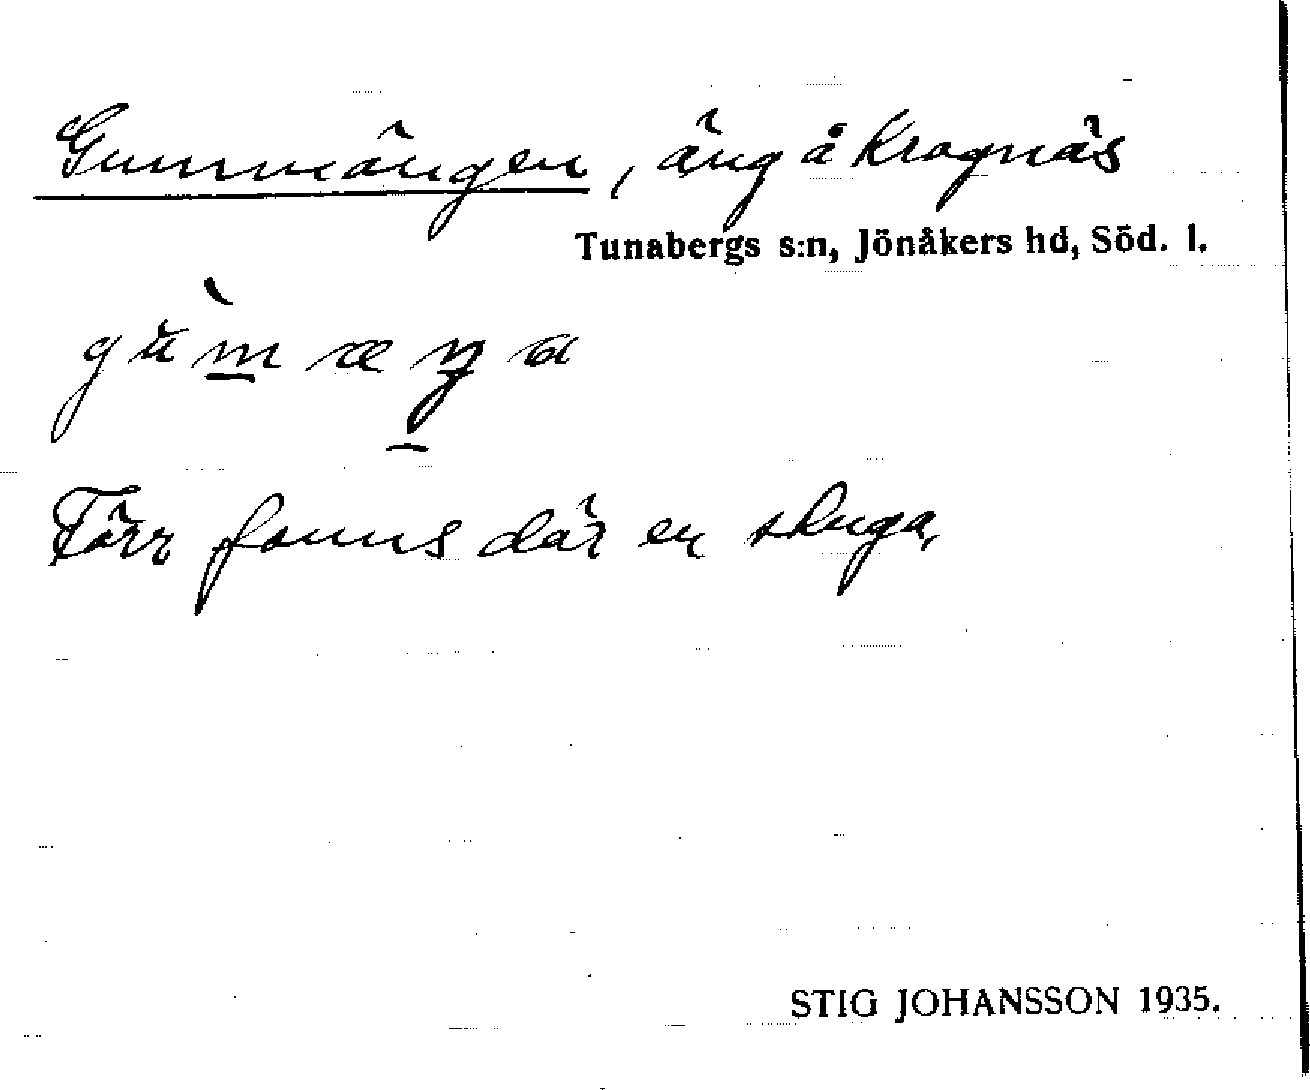 Gummängen, äng å Krognäs
Tunabergs s:n, Jönåkers hd, Söd. l.
gu̇̀mæŋa
Förr fanns där en stuga.
STIG JOHANSSON 1935.